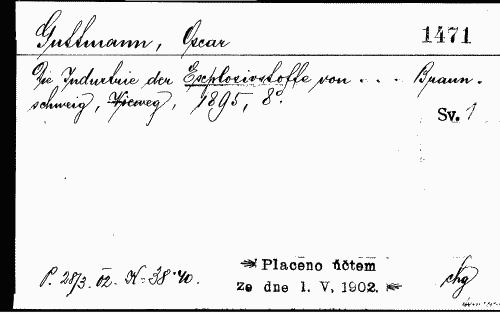 Guttmann, Oscar
1471
Die Industrie der Explosivstoffe von . . . Braun-
schweig, Vieweg, 1895, 8°.
Sv. 1
P. 28/3. 02. K = 38·40.
Placeno účtem
ze dne 1. V. 1902.